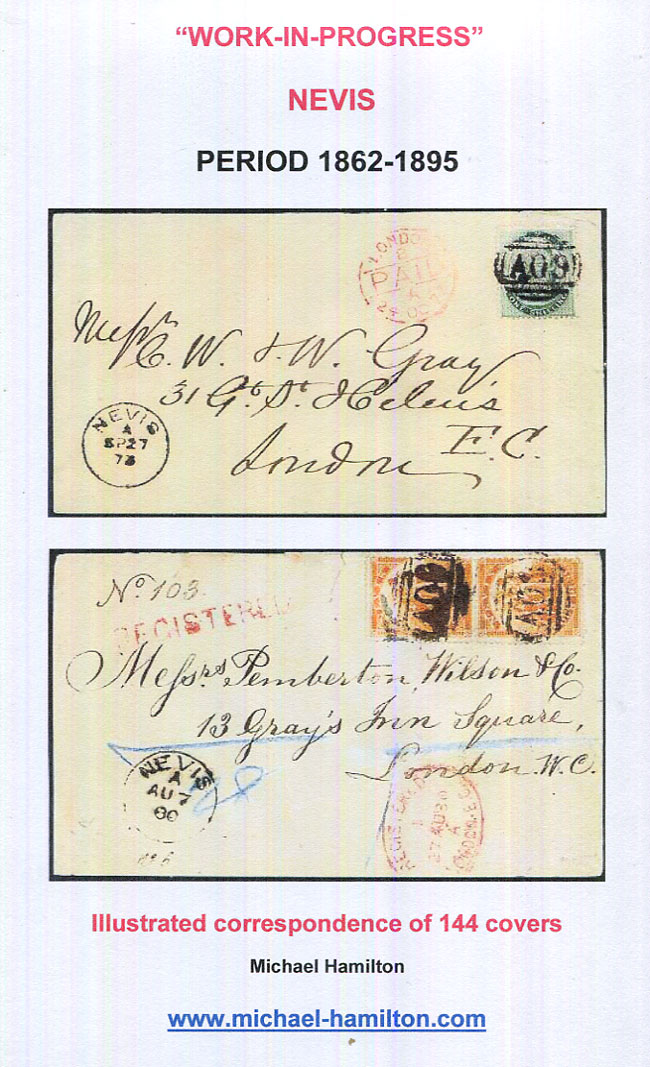 “WORK-IN-PROGRESS”
NEVIS
PERIOD 1862-1895
LONDON
PAID
A09
ONE SHILLING
Messrs
C. W. & W. Gray
31 Gt. St. Helen's
London E.C.
NEVIS
A
SP 27
73
No. 103
REGISTERED
A09
A09
Messrs Pemberton, Wilson & Co.
13 Gray's Inn Square,
London. W.C.
NEVIS
A
AU 7
80
REGISTERED
27 AU 80
A
LONDON. E.C.
Illustrated correspondence of 144 covers
Michael Hamilton
www.michael-hamilton.com